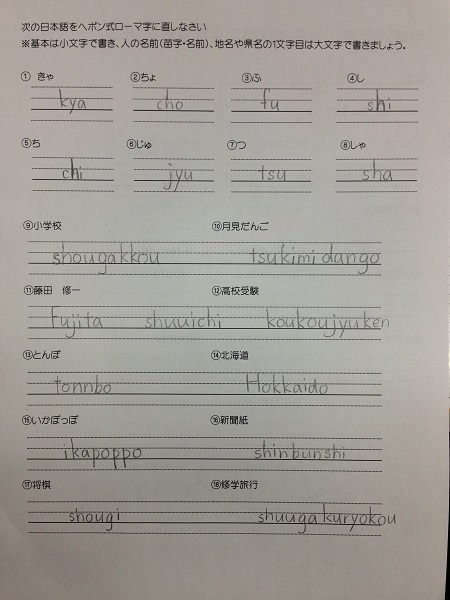 次の日本語をヘボン式ローマ字に直しなさい
※基本は小文字で書き、人の名前(苗字・名前)、地名や県名の1文字目は大文字で書きましょう。
① きゃ ②ちょ ③ふ ④し
kya cho fu shi
⑤ち ⑥じゅ ⑦つ ⑧しゃ
chi jyu tsu sha
⑨小学校 ⑩月見だんご
shougakkou tsukimi dango
⑪藤田 修一 ⑫高校受験
fujita shuuichi koukoujyuken
⑬とんぼ ⑭北海道
tonnbo Hokkaido
⑮いかぽっぽ ⑯新聞紙
ikapoppo shinbunshi
⑰将棋 ⑱修学旅行
shougi shuugakuryokou